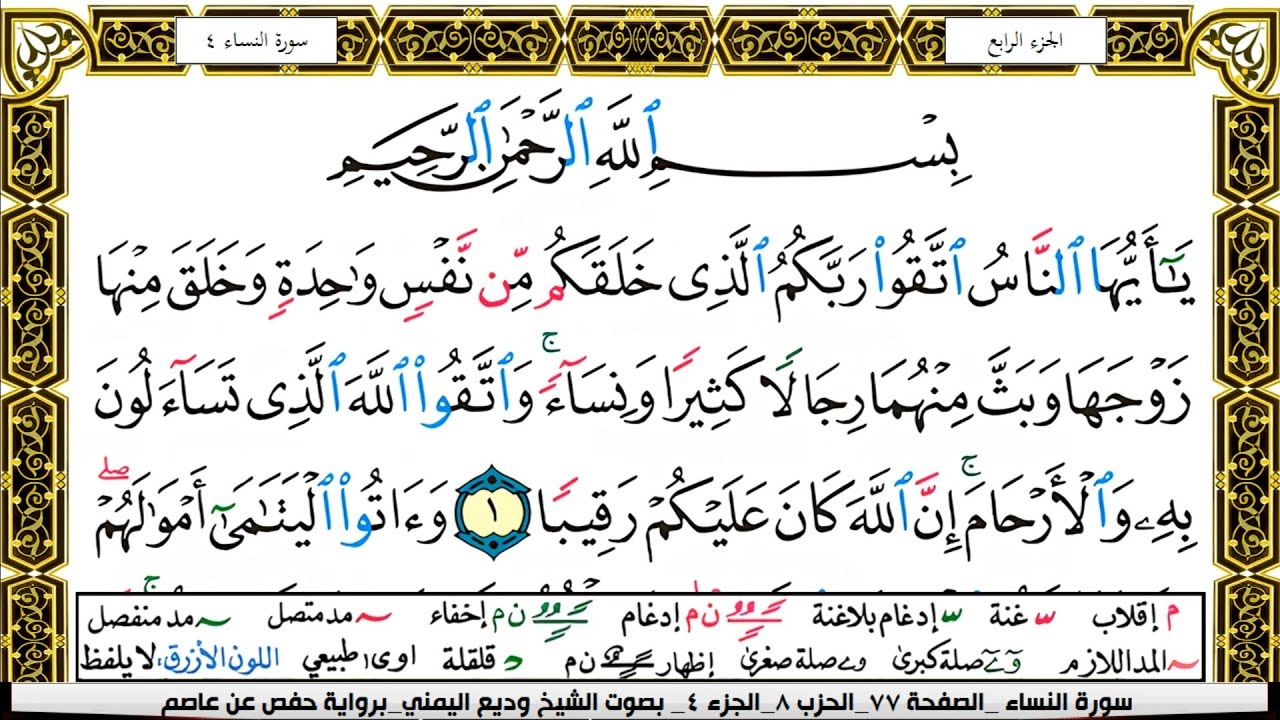 الجزء الرابع
سورة النساء ٤
بِسْمِ ٱللَّهِ ٱلرَّحْمَٰنِ ٱلرَّحِيمِ
يَٰٓأَيُّهَا ٱلنَّاسُ ٱتَّقُوا۟ رَبَّكُمُ ٱلَّذِى خَلَقَكُم مِّن نَّفْسٍ وَٰحِدَةٍ وَخَلَقَ مِنْهَا
زَوْجَهَا وَبَثَّ مِنْهُمَا رِجَالًا كَثِيرًا وَنِسَآءً ۚ وَٱتَّقُوا۟ ٱللَّهَ ٱلَّذِى تَسَآءَلُونَ
بِهِۦ وَٱلْأَرْحَامَ ۚ إِنَّ ٱللَّهَ كَانَ عَلَيْكُمْ رَقِيبًا ١ وَءَاتُوا۟ ٱلْيَتَٰمَىٰٓ أَمْوَٰلَهُمْ ۖ
م إقلاب ~ غنة ~ إدغام بلاغنة ن م إدغام ن م إخفاء ~ مد متصل ~ مد منفصل
~ المد اللازم و ے صلة كبرى و ے صلة صغرى إظهار ن م د قلقلة اوى طبيعي اللون الأزرق: لا يلفظ
سورة النساء _الصفحة ٧٧_الحزب ٨_الجزء ٤_ بصوت الشيخ وديع اليمني_برواية حفص عن عاصم